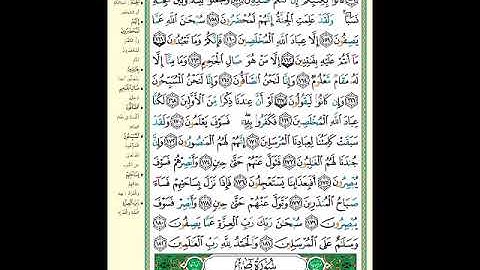 فَأْتُوا۟ بِكِتَـٰبِكُمْ إِن كُنتُمْ صَـٰدِقِينَ ١٥٧ وَجَعَلُوا۟ بَيْنَهُۥ وَبَيْنَ ٱلْجِنَّةِ
نَسَبًا ۚ وَلَقَدْ عَلِمَتِ ٱلْجِنَّةُ إِنَّهُمْ لَمُحْضَرُونَ ١٥٨ سُبْحَـٰنَ ٱللَّهِ عَمَّا
يَصِفُونَ ١٥٩ إِلَّا عِبَادَ ٱللَّهِ ٱلْمُخْلَصِينَ ١٦٠ فَإِنَّكُمْ وَمَا تَعْبُدُونَ ١٦١
مَآ أَنتُمْ عَلَيْهِ بِفَـٰتِنِينَ ١٦٢ إِلَّا مَنْ هُوَ صَالِ ٱلْجَحِيمِ ١٦٣ وَمَا مِنَّآ إِلَّا
لَهُۥ مَقَامٌ مَّعْلُومٌ ١٦٤ وَإِنَّا لَنَحْنُ ٱلصَّآفُّونَ ١٦٥ وَإِنَّا لَنَحْنُ ٱلْمُسَبِّحُونَ
١٦٦ وَإِن كَانُوا۟ لَيَقُولُونَ ١٦٧ لَوْ أَنَّ عِندَنَا ذِكْرًا مِّنَ ٱلْأَوَّلِينَ ١٦٨ لَكُنَّا
عِبَادَ ٱللَّهِ ٱلْمُخْلَصِينَ ١٦٩ فَكَفَرُوا۟ بِهِۦ ۖ فَسَوْفَ يَعْلَمُونَ ١٧٠ وَلَقَدْ
سَبَقَتْ كَلِمَتُنَا لِعِبَادِنَا ٱلْمُرْسَلِينَ ١٧١ إِنَّهُمْ لَهُمُ ٱلْمَنصُورُونَ ١٧٢ وَإِنَّ
جُندَنَا لَهُمُ ٱلْغَـٰلِبُونَ ١٧٣ فَتَوَلَّ عَنْهُمْ حَتَّىٰ حِينٍ ١٧٤ وَأَبْصِرْهُمْ فَسَوْفَ
يُبْصِرُونَ ١٧٥ أَفَبِعَذَابِنَا يَسْتَعْجِلُونَ ١٧٦ فَإِذَا نَزَلَ بِسَاحَتِهِمْ فَسَآءَ
صَبَاحُ ٱلْمُنذَرِينَ ١٧٧ وَتَوَلَّ عَنْهُمْ حَتَّىٰ حِينٍ ١٧٨ وَأَبْصِرْ فَسَوْفَ
يُبْصِرُونَ ١٧٩ سُبْحَـٰنَ رَبِّكَ رَبِّ ٱلْعِزَّةِ عَمَّا يَصِفُونَ ١٨٠
وَسَلَـٰمٌ عَلَى ٱلْمُرْسَلِينَ ١٨١ وَٱلْحَمْدُ لِلَّهِ رَبِّ ٱلْعَـٰلَمِينَ ١٨٢
سُورَةُ صٓ